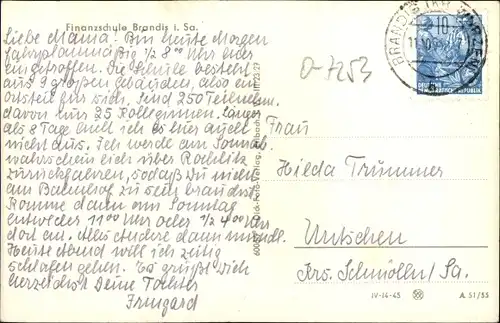 Finanzschule Brandis i. Sa.
Liebe Mama! Bin heute Morgen
fahrplanmäßig 1/2 8°° Uhr hier
eingetroffen. Die Schule besteht
aus 3 großen Gebäuden, also ein
Ortsteil für sich. Sind 250 Teilnehmer
davon nur 25 Kolleginnen. Länger
als 8 Tage halt ich es hier auch
nicht aus. Ich werde am Sonnab.
wahrscheinlich über Rochlitz
zurückfahren, sodaß Du nicht
am Bahnhof zu sein brauchst
Komme dann am Sonntag
entweder 11°° Uhr oder 1/2 4°° Uhr
dort ein. Alles andere dann mündl.
Heute Abend will ich zeitig
schlafen gehen. Es grüßt Dich
herzlichst Deine Tochter
Irmgard
BRANDIS
10
DEUTSCHE
DEMOKRATISCHE REPUBLIK
O-7253
Frau
Hilda Trummer
Untschen
Krs. Schmölln/Sa.
IV-14-45
A 51/55